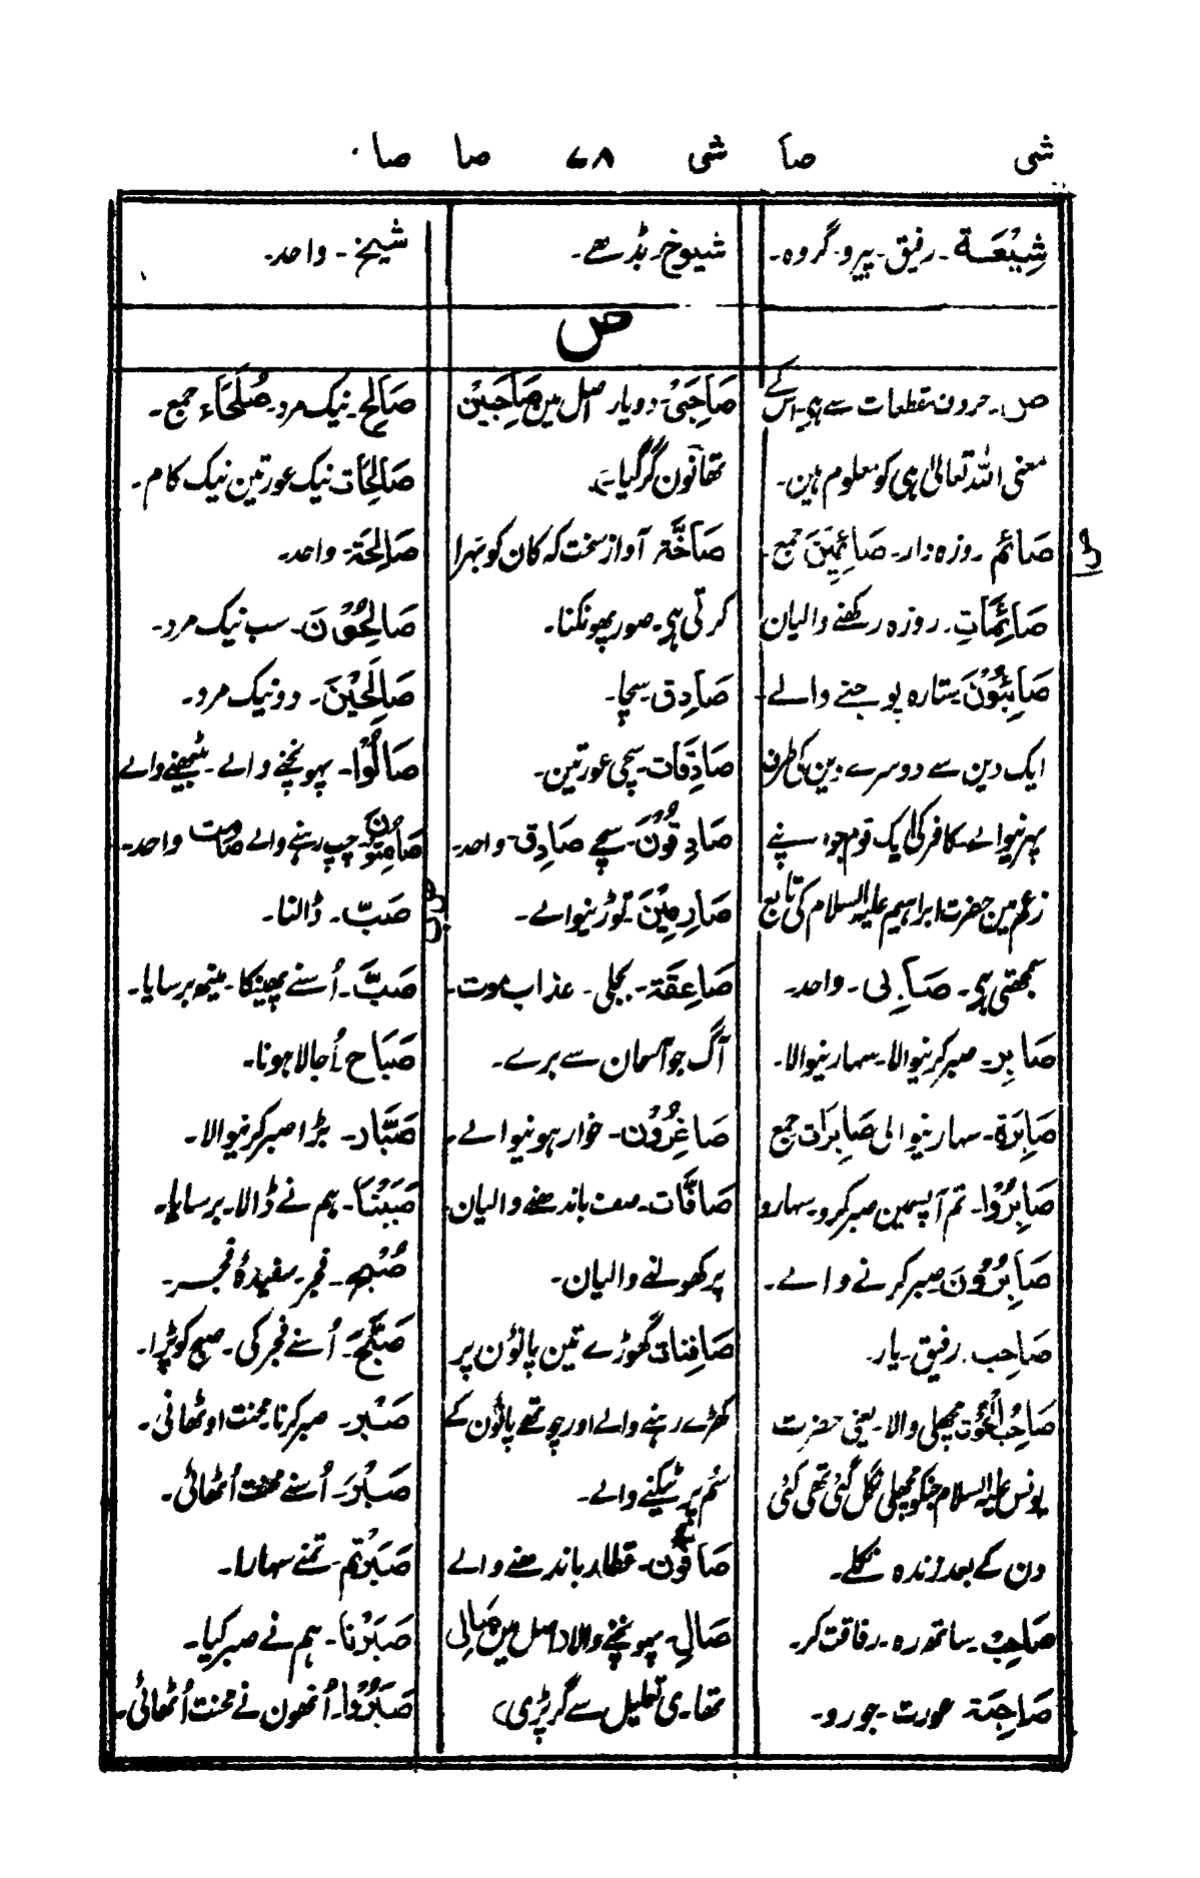 شی صا شی ۷۸ صا صا
شِیْعَۃ۔ رفیق۔ پیرو۔ گروہ۔
شیوخ۔ بڈھے۔
شیخ۔ واحد۔
ص
ص۔ حروف مقطعات سے ہی۔ اس کے
معنی اللہ تعالیٰ ہی کو معلوم ہین۔
صَائم روزہ دار۔ صَائِمِیْنَ جمع۔
صَائِمَاتِ۔ روزہ رکھنے والیان
صَابِئُوْنَ ستارہ پوجنے والے۔
ایک دین سے دوسرے دین کی طرف
پہرنیوالے۔ کافر کی ایک قوم جو اپنے
زعم مین حضرت ابراہیم علیہ السلام کی تابع
سمجھتی ہی۔ صَابِی۔ واحد۔
صَابِر۔ صبر کرنیوالا۔ سہارنیوالا۔
صَابِرَۃ۔ سہارنیوالی صَابِرَات جمع
صَابِرُوْا۔ تم آپسمین صبر کرو۔ سہارو
صَابِرُوْنَ صبر کرنے والے۔
صَاحِب۔ رفیق۔ یار۔
صَاحِبُ الْحُوْت مچھلی والا۔ یعنی حضرت
یونس علیہ السلام جنکو مچھلی نگل گئی تھی کئی
دن کے بعد زندہ نکلے۔
صَاحِبْ۔ ساتھ رہ۔ رفاقت کر۔
صَاحِبَۃ عورت۔ جورو۔
صَاحِبَیْ۔ دو یار اصل مین صَاحِبَیْن
تھا نون گر گیا۔
صَاخَّۃ آواز سخت کہ کان کو بہرا
کرتی ہی۔ صور پھونکنا۔
صَادِق۔ سچا۔
صَادِقَات۔ سچی عورتین۔
صَادِقُوْنَ۔ سچے صَادِق۔ واحد۔
صَارِمِیْنَ۔ توڑنیوالے۔
صَاعِقَۃ۔ بجلی۔ عذاب موت۔
آگ جو آسمان سے برے۔
صَاغِرُوْن۔ خوار ہونیوالے۔
صَافَّات۔ صف باندھنے والیان۔
پر کھولنے والیان۔
صَافِنَات گھوڑے تین پانؤن پر
کھڑے رہنے والے اور چوتھے پانؤن کے
سُم پر ٹیکنے والے۔
صَافُّوْن۔ قطار باندھنے والے
صَالِ۔ پہونچنے والا (اصل مین صَالِی
تھا۔ ی تعلیل سے گر پڑی)
صَالِح۔ نیک مرد۔ صُلَحَاء جمع۔
صَالِحَات نیک عورتین نیک کام۔
صَالِحَۃ۔ واحد۔
صَالِحُوْنَ۔ سب نیک مرد۔
صَالِحَیْنَ۔ دو نیک مرد۔
صَالُوْا۔ پہونچنے والے۔ بیٹھنے والے
صَامِتُوْن چپ رہنے والے صامت واحد۔
صَبّ۔ ڈالنا۔
صَبَّ۔ اُسنے پھینکا۔ مینھ برسایا۔
صَبَاح اُجالا ہونا۔
صَبَّار۔ بڑا صبر کرنیوالا۔
صَبَبْنَا۔ ہم نے ڈالا۔ برسایا۔
صُبْح۔ فجر۔ سفیدۂ فجر۔
صَبَّحَ۔ اُسنے فجر کی۔ صبح کو پڑا۔
صَبْر۔ صبر کرنا۔ محنت اوٹھانی۔
صَبَرَ۔ اُسنے محنت اُٹھائی۔
صَبَرْتم۔ تمنے سہارا۔
صَبَرْنَا۔ ہم نے صبر کیا۔
صَبَرُوْا۔ اُنھون نے محنت اُٹھائی۔